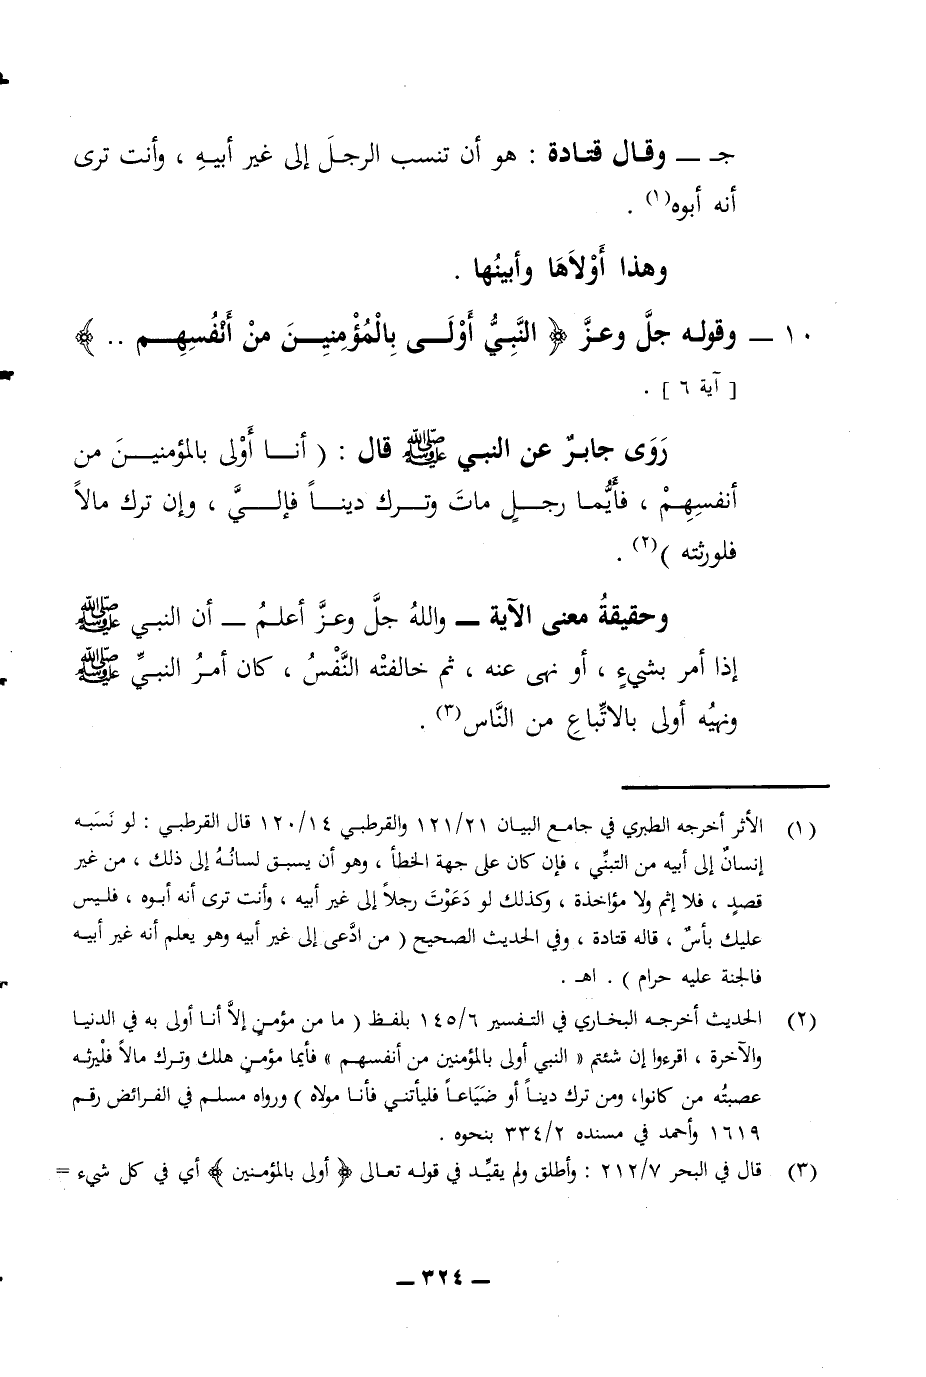 جـ ـــ وقـال قتـادة : هو أن تنسب الرجلَ إلى غير أبيهِ ، وأنت ترى
أنه أبوه(١) .
وهذا أَوْلاَهَا وأبينُها .
١٠ ـــ وقولـه جلَّ وعـزَّ ﴿ النَّبِـيُّ أَوْلَـــى بِالْمُؤْمِنِيـــنَ منْ أَنْفُسِهِـــم .. ﴾
[ آية ٦ ] .
رَوَى جابـرٌ عن النبـي ﷺ قال : ( أنـــا أَوْلى بالمؤمنيـــنَ من
أنفسِهِمْ ، فأَيُّمـا رجـــلٍ ماتَ وتـــرك دينـــاً فإلـــيَّ ، وإن ترك مالاً
فلورثته )(٢) .
وحقيقةُ معنى الآية ـــ واللهُ جلَّ وعـزَّ أعلـمُ ـــ أن النبـي ﷺ
إذا أمر بشيءٍ ، أو نهى عنه ، ثم خالفتْه النَّفْسُ ، كان أمـرُ النبـيِّ ﷺ
ونهيُه أولى بالاتِّباعِ من النَّاس(٣) .
(١) الأثر أخرجه الطبري في جامع البيان ١٢١/٢١ والقرطبي ١٢٠/١٤ قال القرطبي : لو نَسَبـه
إنسانٌ إلى أبيه من التبنِّي ، فإن كان على جهة الخطأ ، وهو أن يسبـق لسانُـهُ إلى ذلك ، من غير
قصدٍ ، فلا إثم ولا مؤاخذة ، وكذلك لو دَعَوْتَ رجلاً إلى غير أبيه ، وأنت ترى أنه أبـوه ، فلـيس
عليك بأسٌ ، قاله قتادة ، وفي الحديث الصحيح ( من ادَّعى إلى غير أبيه وهو يعلم أنه غير أبيـه
فالجنة عليه حرام ) . اهـ .
(٢) الحديث أخرجـه البخـاري في التـفسير ١٤٥/٦ بلفـظ ( ما من مؤمـنٍ إلاَّ أنـا أولى به في الدنيـا
والآخرة ، اقرءوا إن شئتم « النبي أولى بالمؤمنين من أنفسهـم » فأيما مؤمـنٍ هلك وتـرك مالاً فلْيرثـه
عصبتُه من كانوا، ومن ترك دينـاً أو ضَيَاعـاً فليأتنـي فأنـا مولاه ) ورواه مسلـم في الفـرائض رقـم
١٦١٩ وأحمد في مسنده ٣٣٤/٢ بنحوه .
(٣) قال في البحر ٢١٢/٧ : وأطلق ولم يقيِّـد في قولـه تعـالى ﴿ أولى بالمؤمـنين ﴾ أي في كل شيء =
ـــ ٣٢٤ ـــ